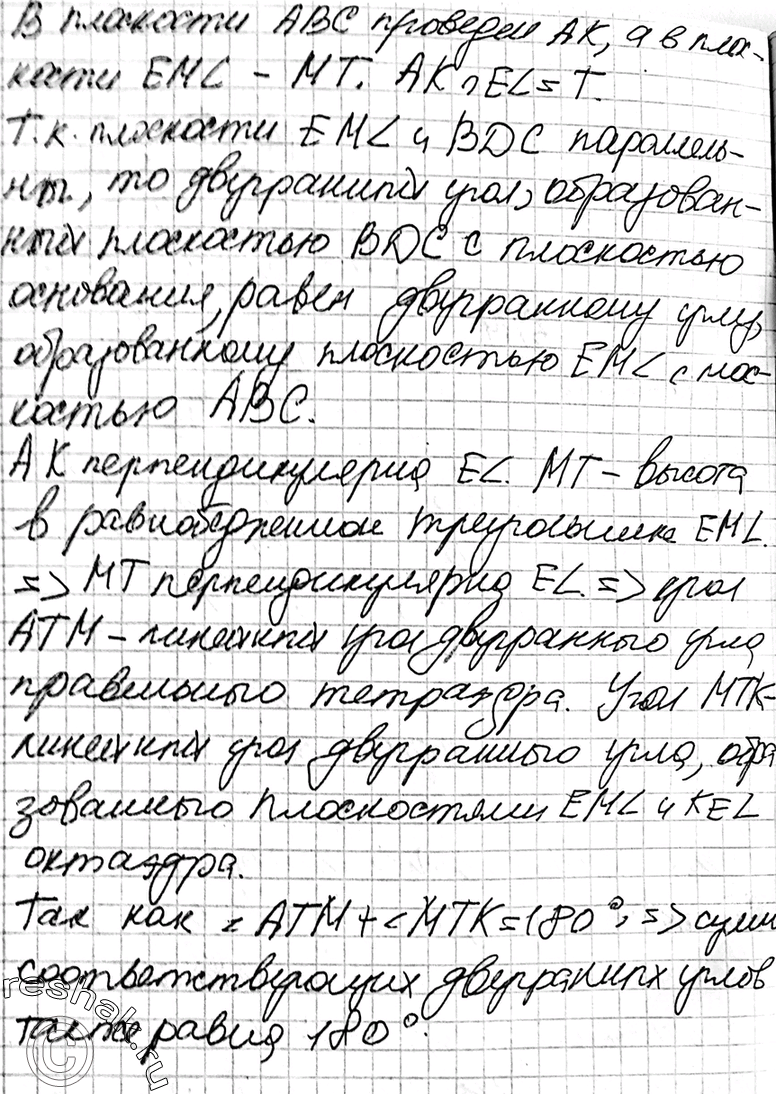 В плоскости ABC проведем AK, а в плос-
кости EML - MT. AK ∩ EL = T.
Т.к. плоскости EML и BDC параллель-
ны, то двугранный угол, образован-
ный плоскостью BDC с плоскостью
основания, равен двугранному углу,
образованному плоскостью EML с плос-
костью ABC.
AK перпендикулярна EL. MT - высота
в равнобедренном треугольнике EML.
=> MT перпендикулярна EL. => угол
ATM - линейный угол двугранного угла
правильного тетраэдра. Угол MTK-
линейный угол двугранного угла, обра
зованного плоскостями EML и KEL
октаэдра.
Так как < ATM + < MTK = 180°, => сумм
соответствующих двугранных углов
также равна 180°.
© reshak.ru